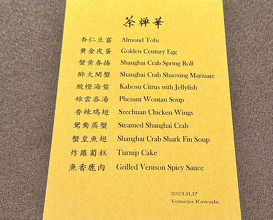 茶禅華
杏仁豆富 Almond Tofu
黄金皮蛋 Golden Century Egg
蟹黄春捲 Shanghai Crab Spring Roll
酔大閘蟹 Shanghai Crab Shaoxing Marinate
酸橙海蜇 Kabosu Citrus with Jellyfish
雉雲呑湯 Phesant Wontan Soup
香辣鶏翅 Szechuan Chicken Wings
鴛鴦蒸蟹 Steamed Shanghai Crab
蟹皇魚翅 Shanghai Crab Shark Fin Soup
炸蘿蔔糕 Turnip Cake
魚香鹿肉 Grilled Venison Spicy Sauce
2023.11.17
Tomoya Kawada